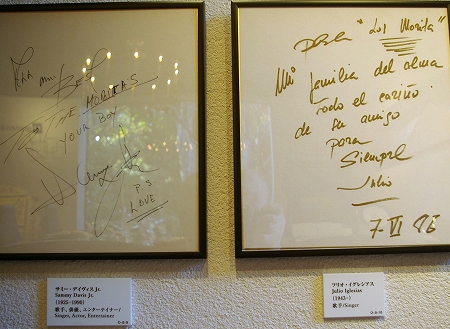 BEST
TO THE MORITAS
YOUR BOY
P.S
LOVE
サミー・デイヴィス Jr.
Sammy Davis Jr.
(1925~1990)
歌手、俳優、エンターテイナー/
Singer, Actor, Entertainer
Para "Los Morita"
Mi familia del alma
todo el cariño
de su amigo
para
Siempre
Julio
7-VI 96
フリオ・イグレシアス
Julio Iglesias
(1943~)
歌手/Singer